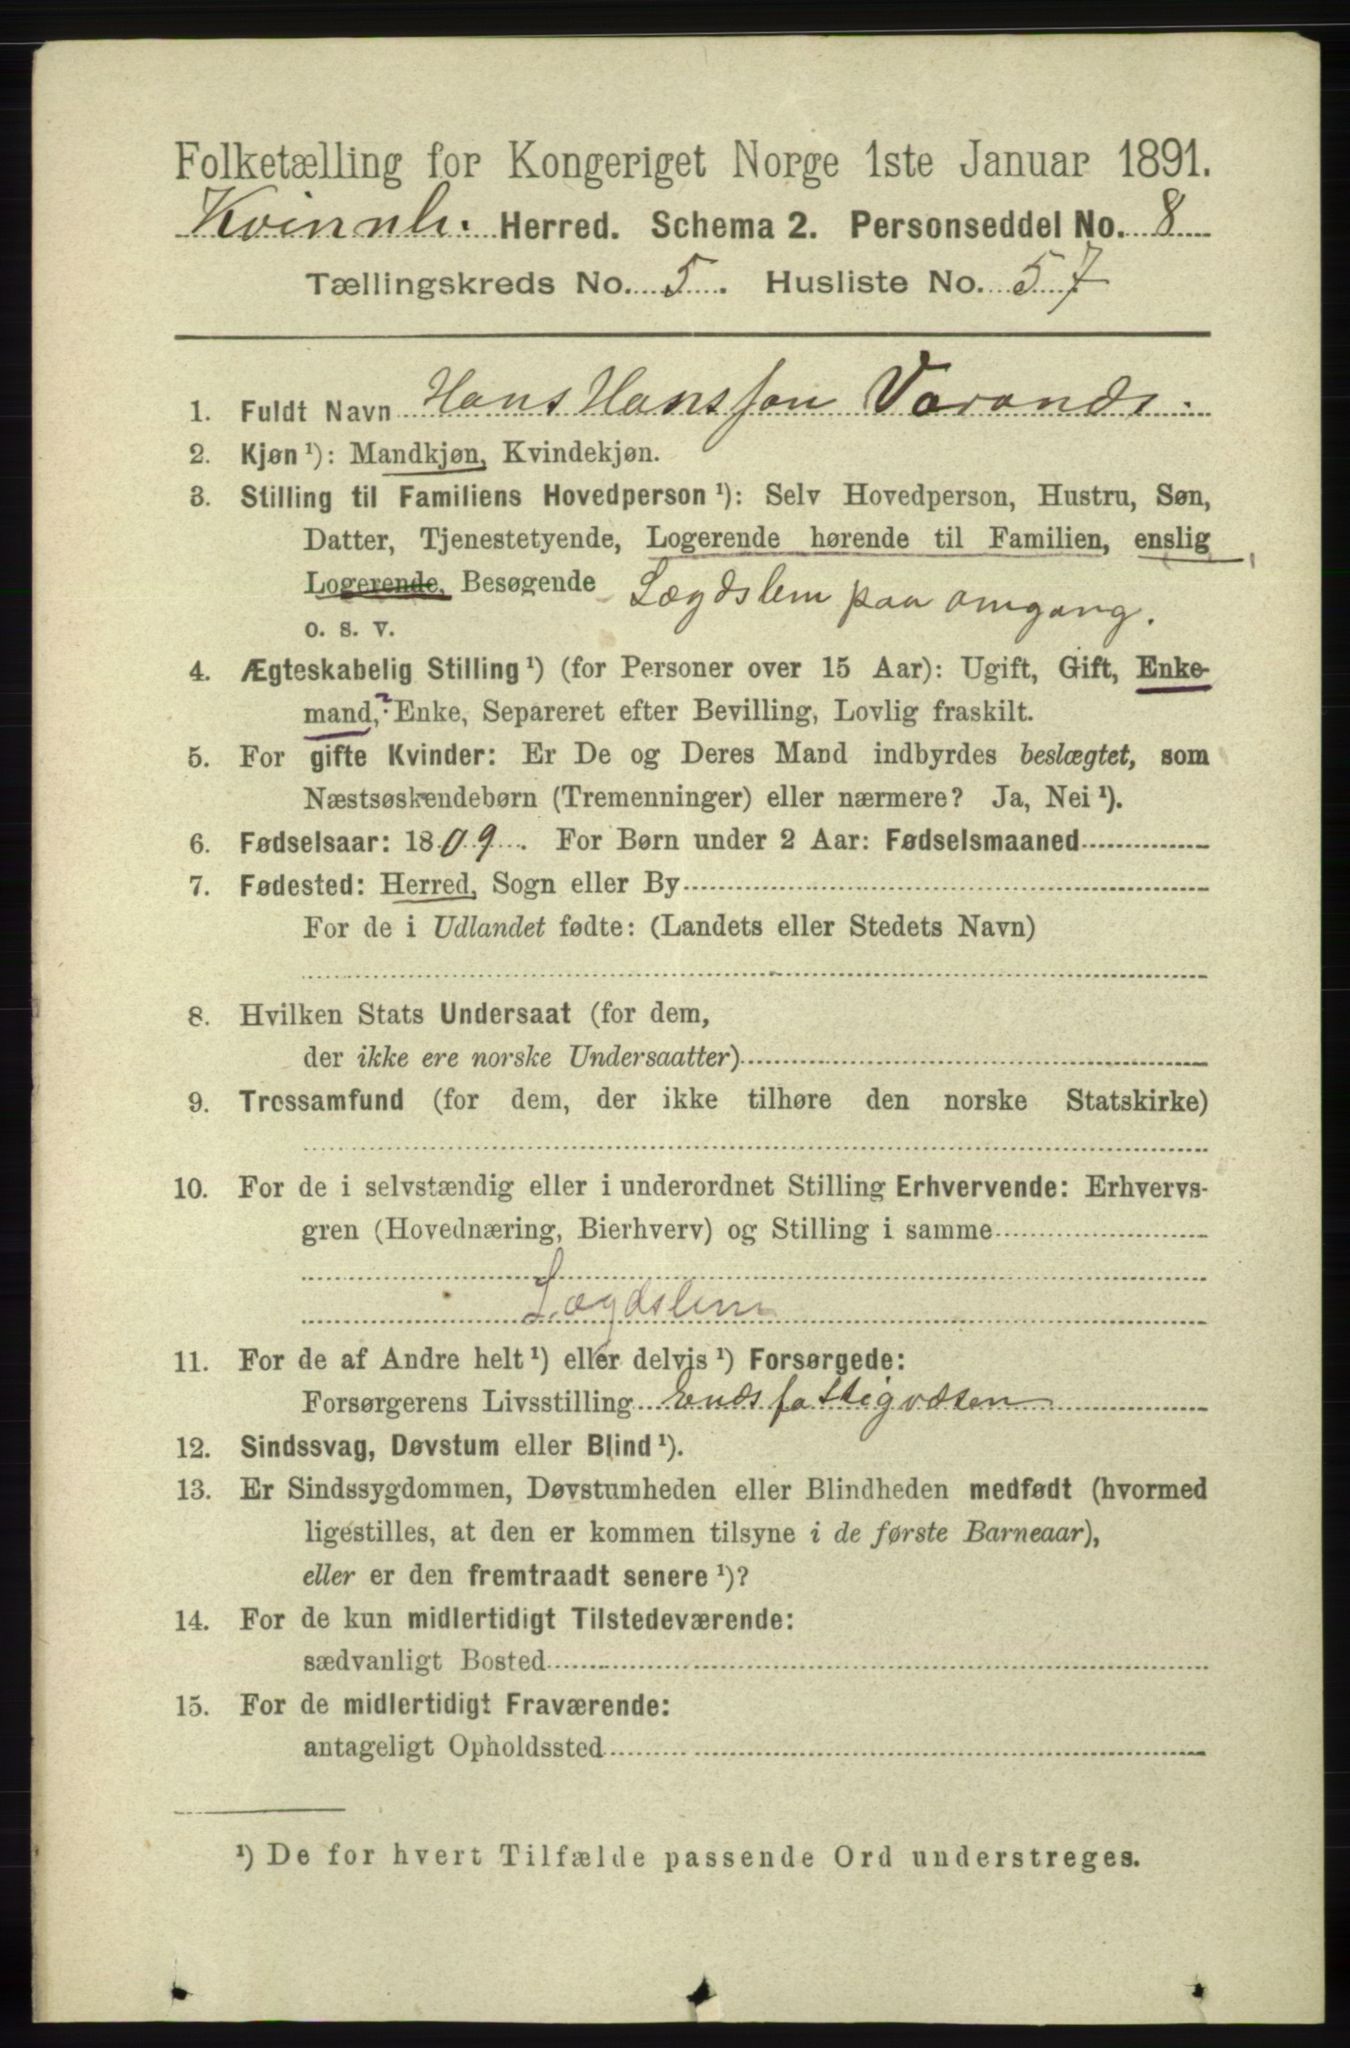 Folketælling for Kongeriget Norge 1ste Januar 1891.
Kvinnh. Herred. Schema 2. Personseddel No. 8
Tællingskreds No. 5. Husliste No. 57
1. Fuldt Navn Hans Hansson
2. Kjøn ¹): Mandkjøn, Kvindekjøn.
3. Stilling til Familiens Hovedperson ¹): Selv Hovedperson, Hustru, Søn,
Datter, Tjenestetyende, Logerende hørende til Familien, enslig
Logerende, Besøgende Lægdslem paa omgang.
o. s. v.
4. Ægteskabelig Stilling ¹) (for Personer over 15 Aar): Ugift, Gift, Enke-
mand,? Enke, Separeret efter Bevilling, Lovlig fraskilt.
5. For gifte Kvinder: Er De og Deres Mand indbyrdes beslægtet, som
Næstsøskendebørn (Tremenninger) eller nærmere? Ja, Nei ¹).
6. Fødselsaar: 1809. For Børn under 2 Aar: Fødselsmaaned
7. Fødested: Herred, Sogn eller By
For de i Udlandet fødte: (Landets eller Stedets Navn)
8. Hvilken Stats Undersaat (for dem,
der ikke ere norske Undersaatter)
9. Trossamfund (for dem, der ikke tilhøre den norske Statskirke)
10. For de i selvstændig eller i underordnet Stilling Erhvervende: Erhvervs-
gren (Hovednæring, Bierhverv) og Stilling i samme
Lægdslem
11. For de af Andre helt ¹) eller delvis ¹) Forsørgede:
Forsørgerens Livsstilling fattigvæsen
12. Sindssvag, Døvstum eller Blind ¹).
13. Er Sindssygdommen, Døvstumheden eller Blindheden medfødt (hvormed
ligestilles, at den er kommen tilsyne i de første Barneaar),
eller er den fremtraadt senere ¹)?
14. For de kun midlertidigt Tilstedeværende:
sædvanligt Bosted
15. For de midlertidigt Fraværende:
antageligt Opholdssted
¹) De for hvert Tilfælde passende Ord understreges.